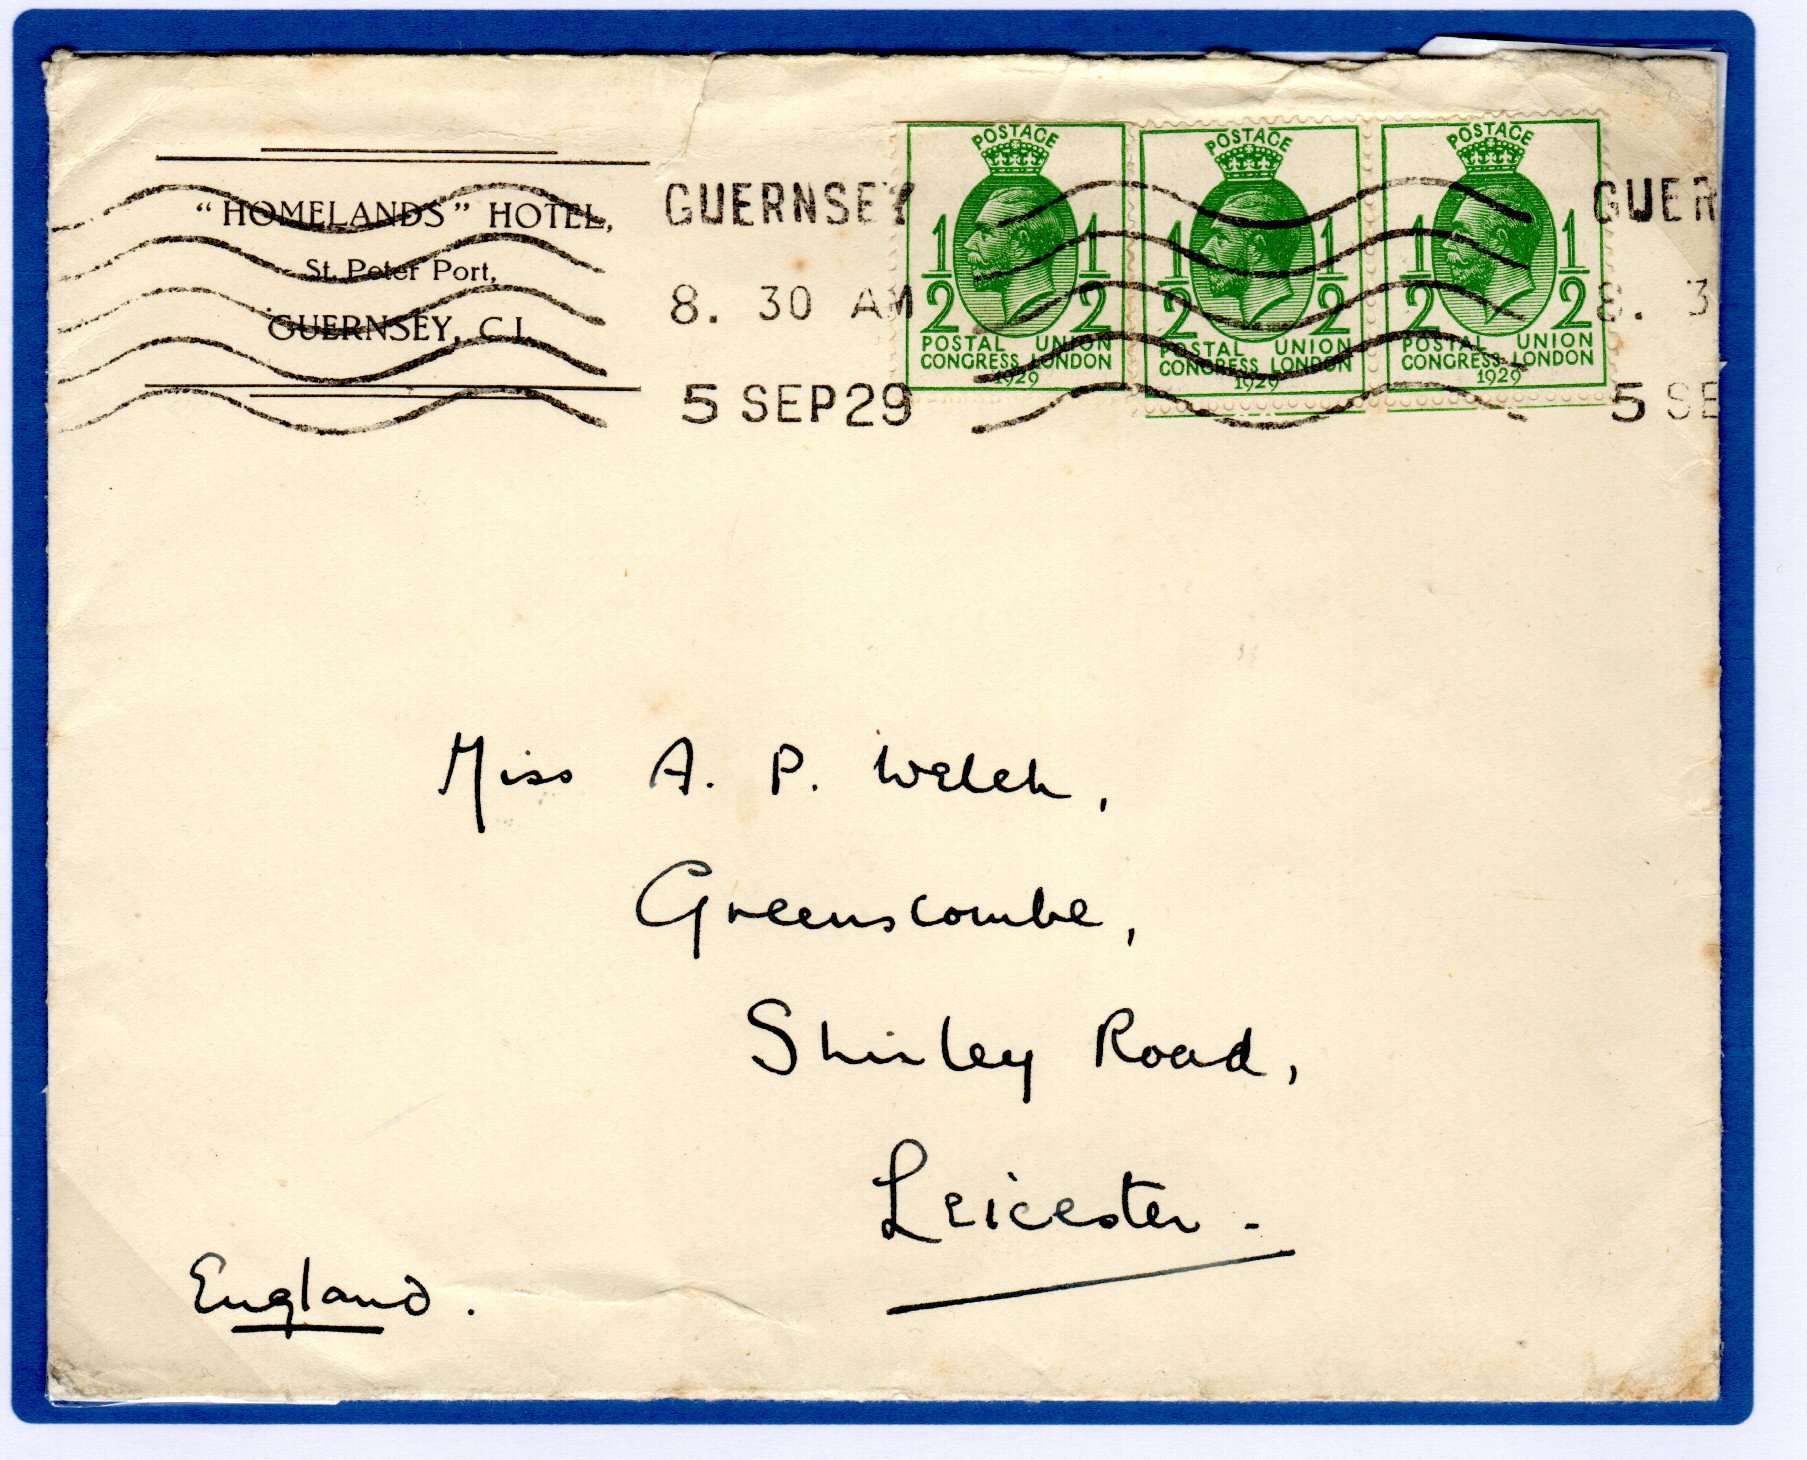 "HOMELANDS" HOTEL,
St. Peter Port,
GUERNSEY, C.I.
GUERNSEY
8. 30 AM
5 SEP 29
POSTAGE
1/2 1/2
POSTAL UNION
CONGRESS LONDON
1929
POSTAGE
1/2 1/2
POSTAL UNION
CONGRESS LONDON
1929
POSTAGE
1/2 1/2
POSTAL UNION
CONGRESS LONDON
1929
GUER
8. 3
5 SE
Miss A. P. Welch,
Greenscombe,
Shirley Road,
Leicester.
England.